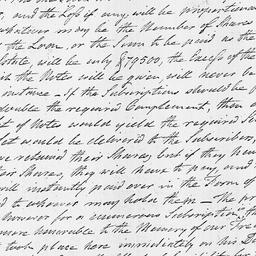 , and the Loss if any, will be proportiona
whatever may be the Number of Shares
the Loan, or the Sum to be paid as the
State, will be only $79500, the Excess of the
the Notes will be given, will never be
instance — If the Subscriptions should be
double the required Complement, then
of Notes would yield the required
would be delivered to the Subscribers,
retained their Shares, but if they
Shares, they will have to pay, and
will instantly paid over in the Form of
to whoever may hold them — the
However for a numerous Subscription
more honorable to the Memory of our
took place here immediately on his